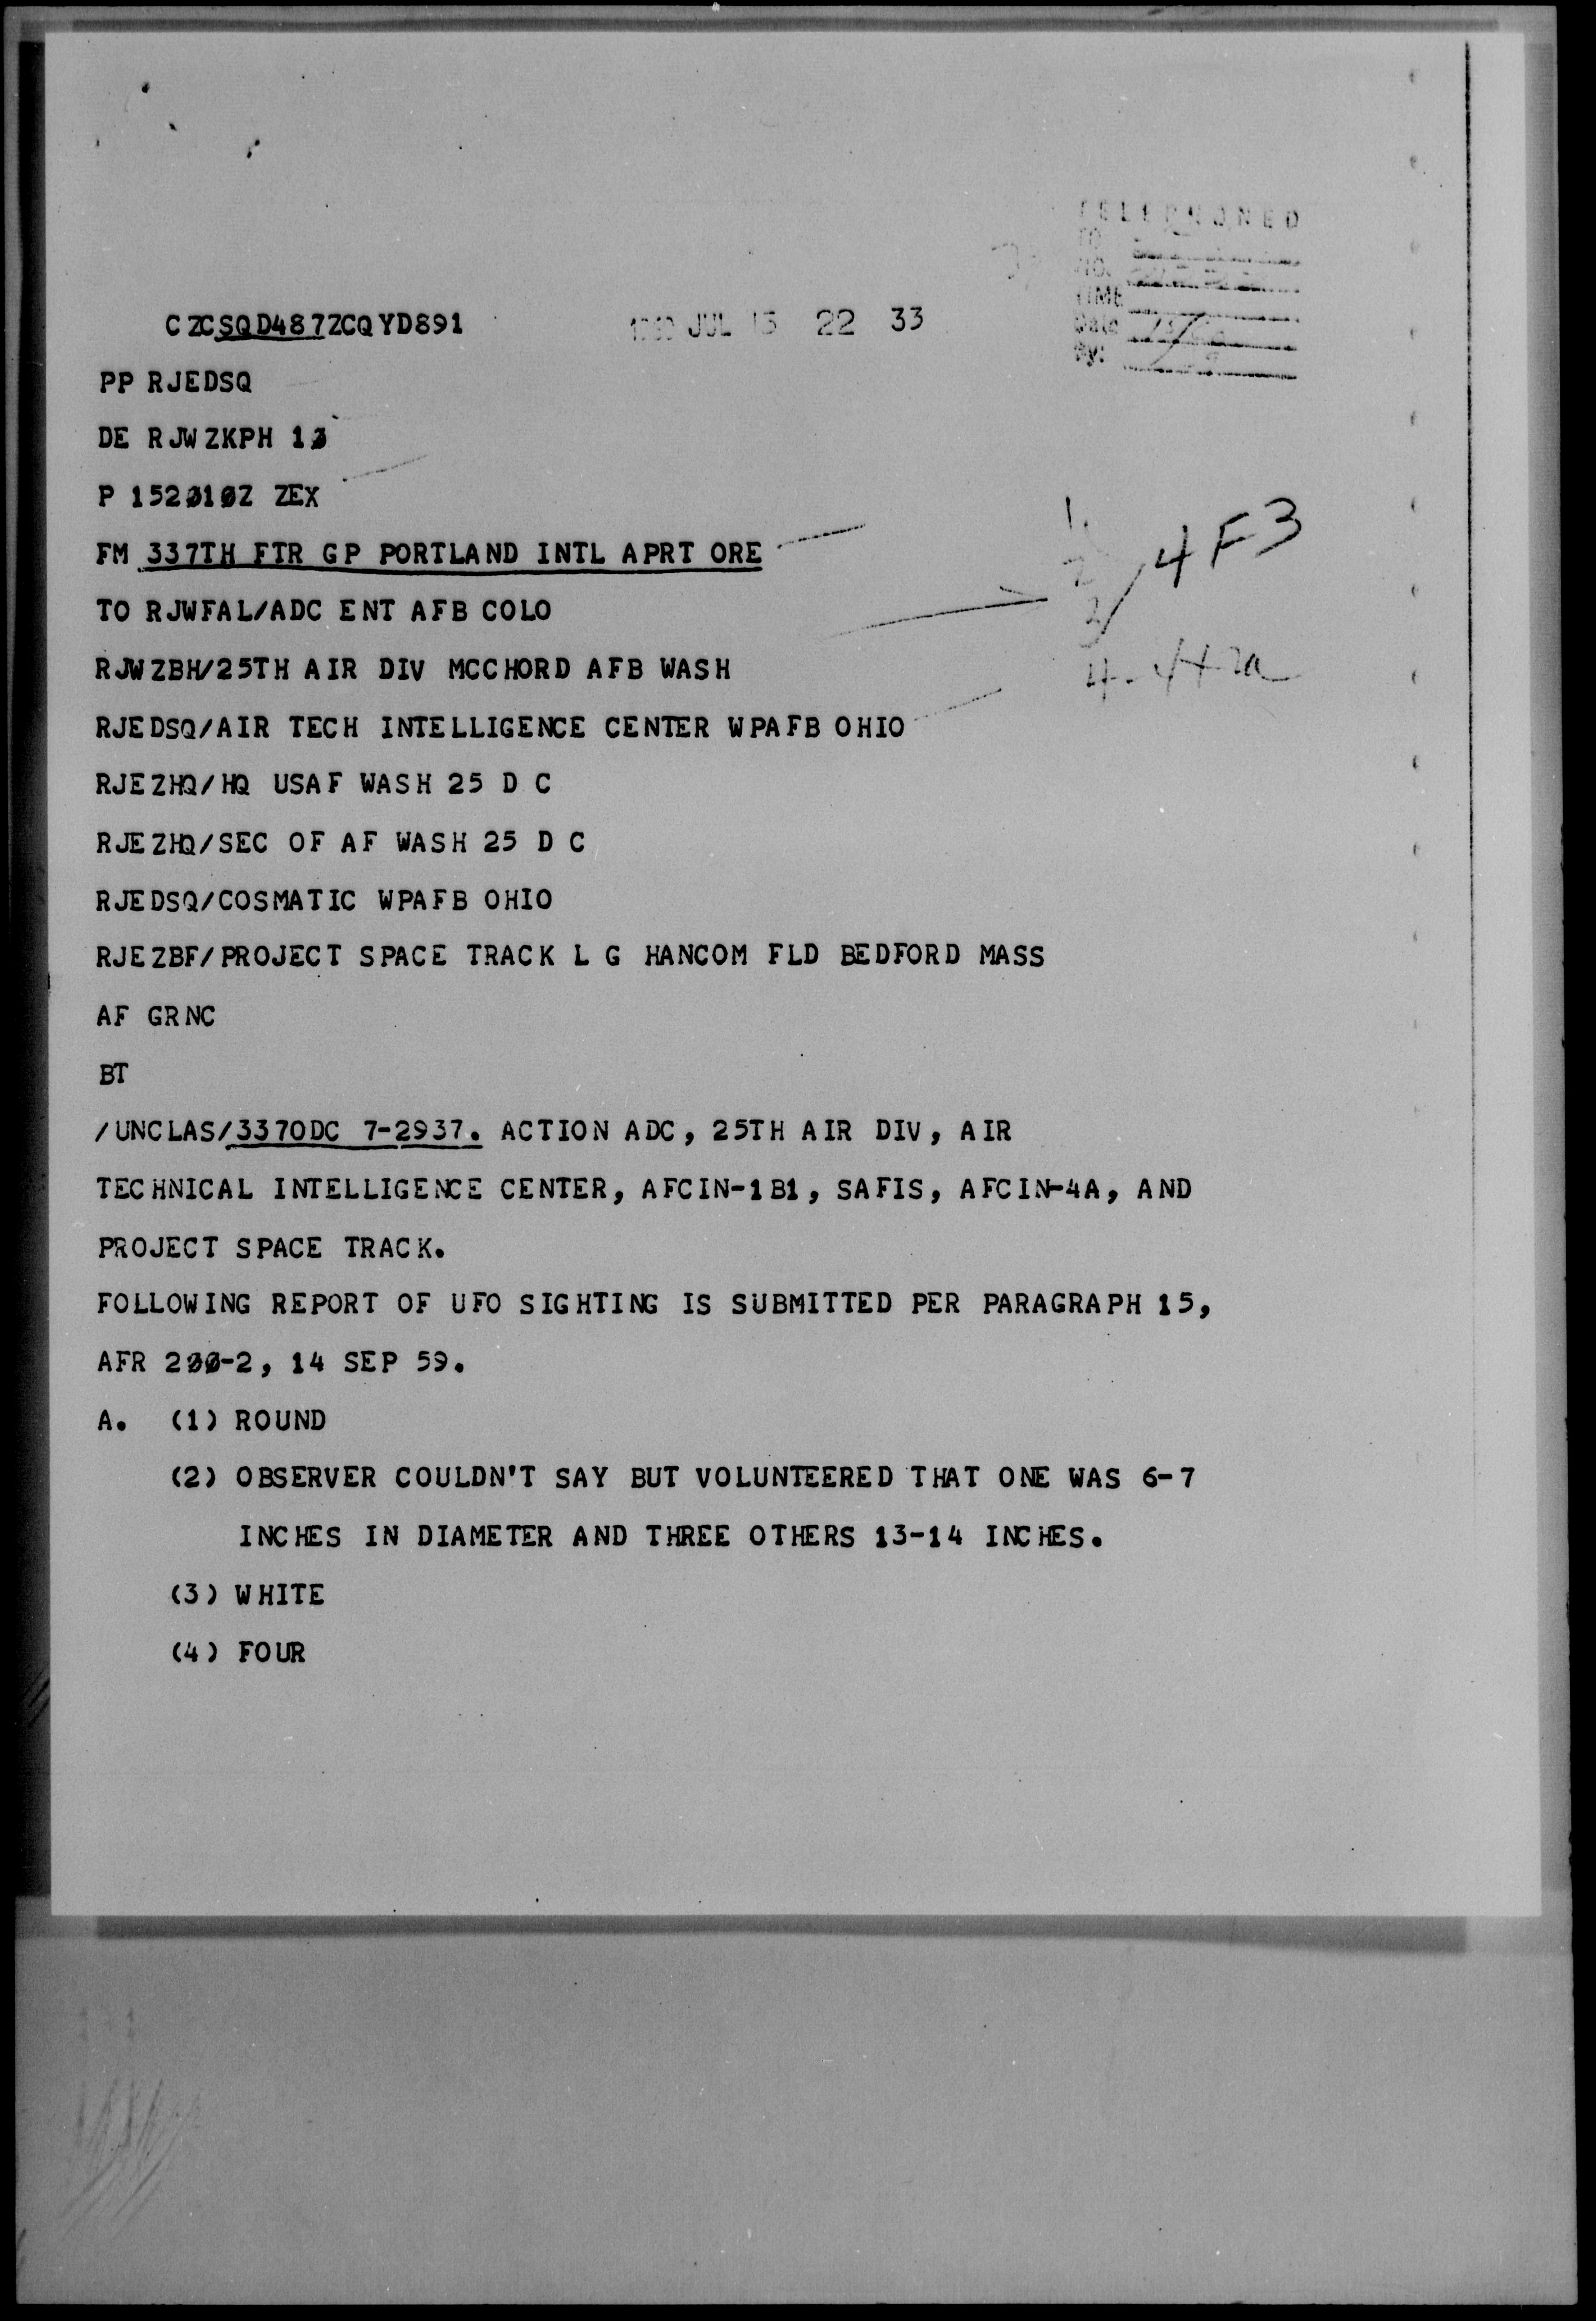 TELEPHONED
TO
NO.
TIME
Date
By:
CZCSQD487ZCQYD891 1960 JUL 15 22 33
PP RJEDSQ
DE RJWZKPH 13
P 152010Z ZEX
FM 337TH FTR GP PORTLAND INTL APRT ORE
TO RJWFAL/ADC ENT AFB COLO
RJWZBH/25TH AIR DIV MCCHORD AFB WASH
RJEDSQ/AIR TECH INTELLIGENCE CENTER WPAFB OHIO
RJEZHQ/HQ USAF WASH 25 D C
RJEZHQ/SEC OF AF WASH 25 D C
RJEDSQ/COSMATIC WPAFB OHIO
RJEZBF/PROJECT SPACE TRACK L G HANCOM FLD BEDFORD MASS
AF GRNC
BT
1.
2
3/ 4F3
4.
/UNCLAS/337ODC 7-2937. ACTION ADC, 25TH AIR DIV, AIR
TECHNICAL INTELLIGENCE CENTER, AFCIN-1B1, SAFIS, AFCIN-4A, AND
PROJECT SPACE TRACK.
FOLLOWING REPORT OF UFO SIGHTING IS SUBMITTED PER PARAGRAPH 15,
AFR 200-2, 14 SEP 59.
A. (1) ROUND
(2) OBSERVER COULDN'T SAY BUT VOLUNTEERED THAT ONE WAS 6-7
INCHES IN DIAMETER AND THREE OTHERS 13-14 INCHES.
(3) WHITE
(4) FOUR